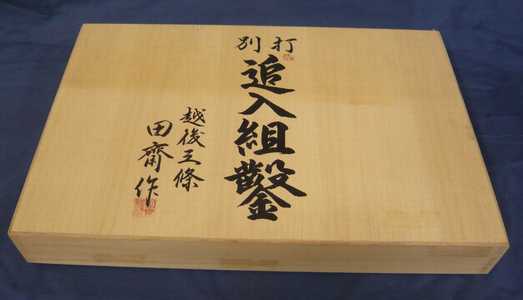 別打
追入組鑿
越後三條
田齋作